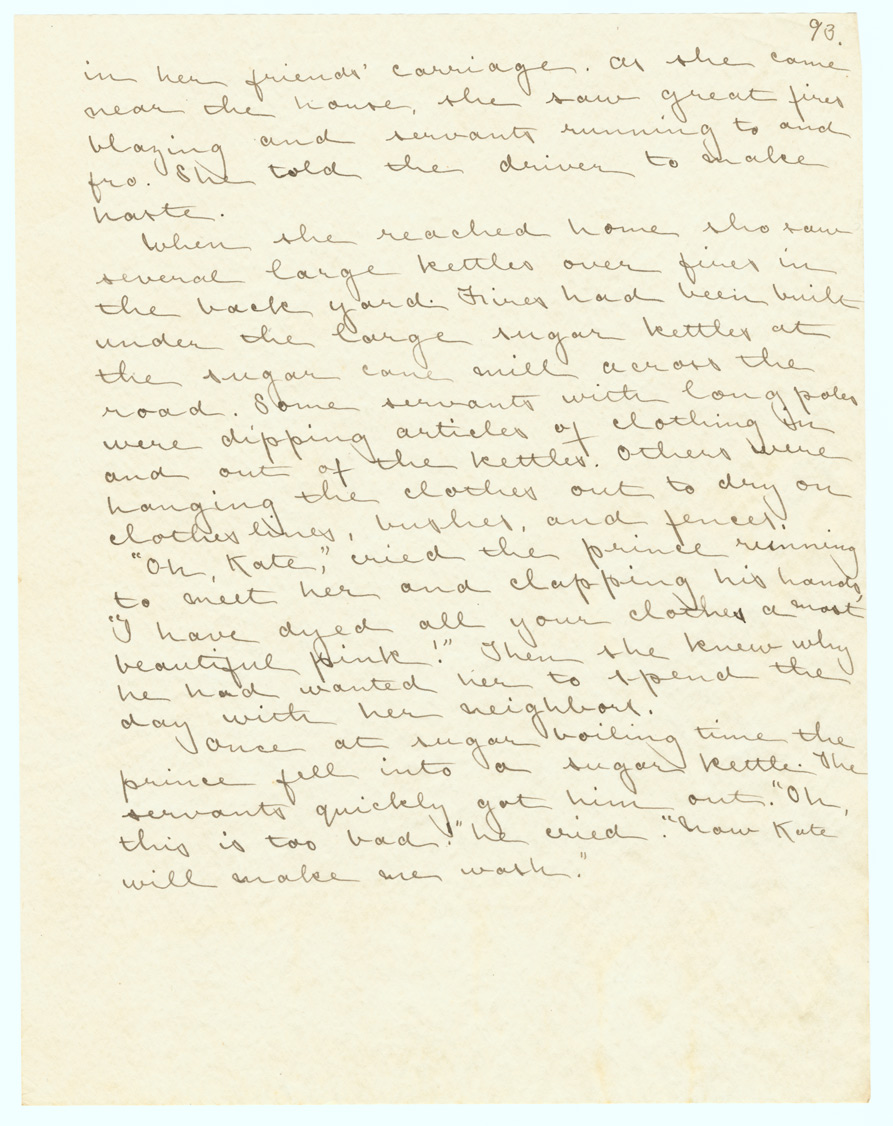 93.
in her friends' carriage. As she came
near the house, she saw great fires
blazing and servants running to and
fro. She told the driver to make
haste.
When she reached home sho saw
several large kettles over fires in
the back yard. Fires had been built
under the large sugar kettles at
the sugar cane mill across the
road. Some servants with long poles
were dipping articles of clothing in
and out of the kettles. Others were
hanging the clothes out to dry on
clothes lines, bushes, and fences.
"Oh, Kate," cried the prince running
to meet her and clapping his hands,
"I have dyed all your clothes a most
beautiful pink!" Then she knew why
he had wanted her to spend the
day with her neighbors.
Once at sugar boiling time the
prince fell into a sugar kettle. The
servants quickly got him out. "Oh,
this is too bad!" he cried. "Now Kate
will make me wash."